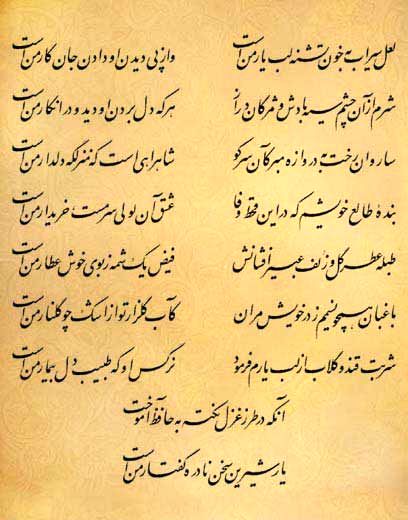 لعل سیراب به خون تشنه لب یار من است وز پی دیدن او دادن جان کار من است
شرم از آن چشم سیه بادش و مژگان دراز هر که دل بردن او دید و در انکار من است
ساروان رخت به دروازه مبر کان سر کو شاهراهی است که منزلگه دلدار من است
بندهٔ طالع خویشم که در این قحط وفا عشق آن لولی سرمست خریدار من است
طبله عطر گل و زلف عبیر افشانش فیض یک شمه ز بوی خوش عطار من است
باغبان همچو نسیمم ز در خویش مران کآب گلزار تو از اشک چو گلنار من است
شربت قند و گلاب از لب یارم فرمود نرگس او که طبیب دل بیمار من است
آنکه در طرز غزل نکته به حافظ آموخت
یار شیرین سخن نادره گفتار من است